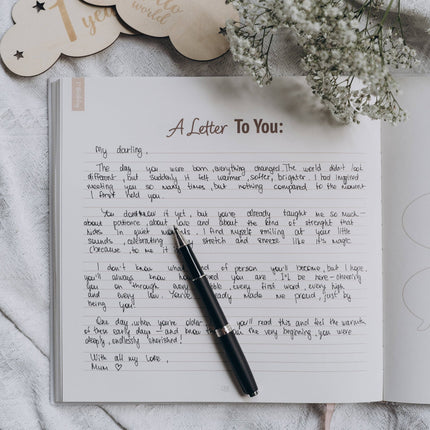 1
year
hello
world
A Letter To You:
My darling,
The day you were born, everything changed. The world didn't look
different, but suddenly it felt warmer, softer, brighter. I had imagined
meeting you so many times, but nothing compared to the moment
I first held you.
You don't know it yet, but you're already taught me so much
about patience, about love and about the kind of strenght that
hides in quiet moments. I find myself smiling at your little
sounds, celebrating stretch and sneeze like it's magic.
(because, to me it
I don't know what of person you'll become, but I hope
you'll always know how loved you are. I'll be here - cheering
you on through every first word, every high
and every low. You've already made me proud, just by
being you.
One day, when you're older, you'll read this and feel the warmth
of these early days - and know the very beginning, you were
deeply, endlessly cherished!
With all my love,
Mum ♡